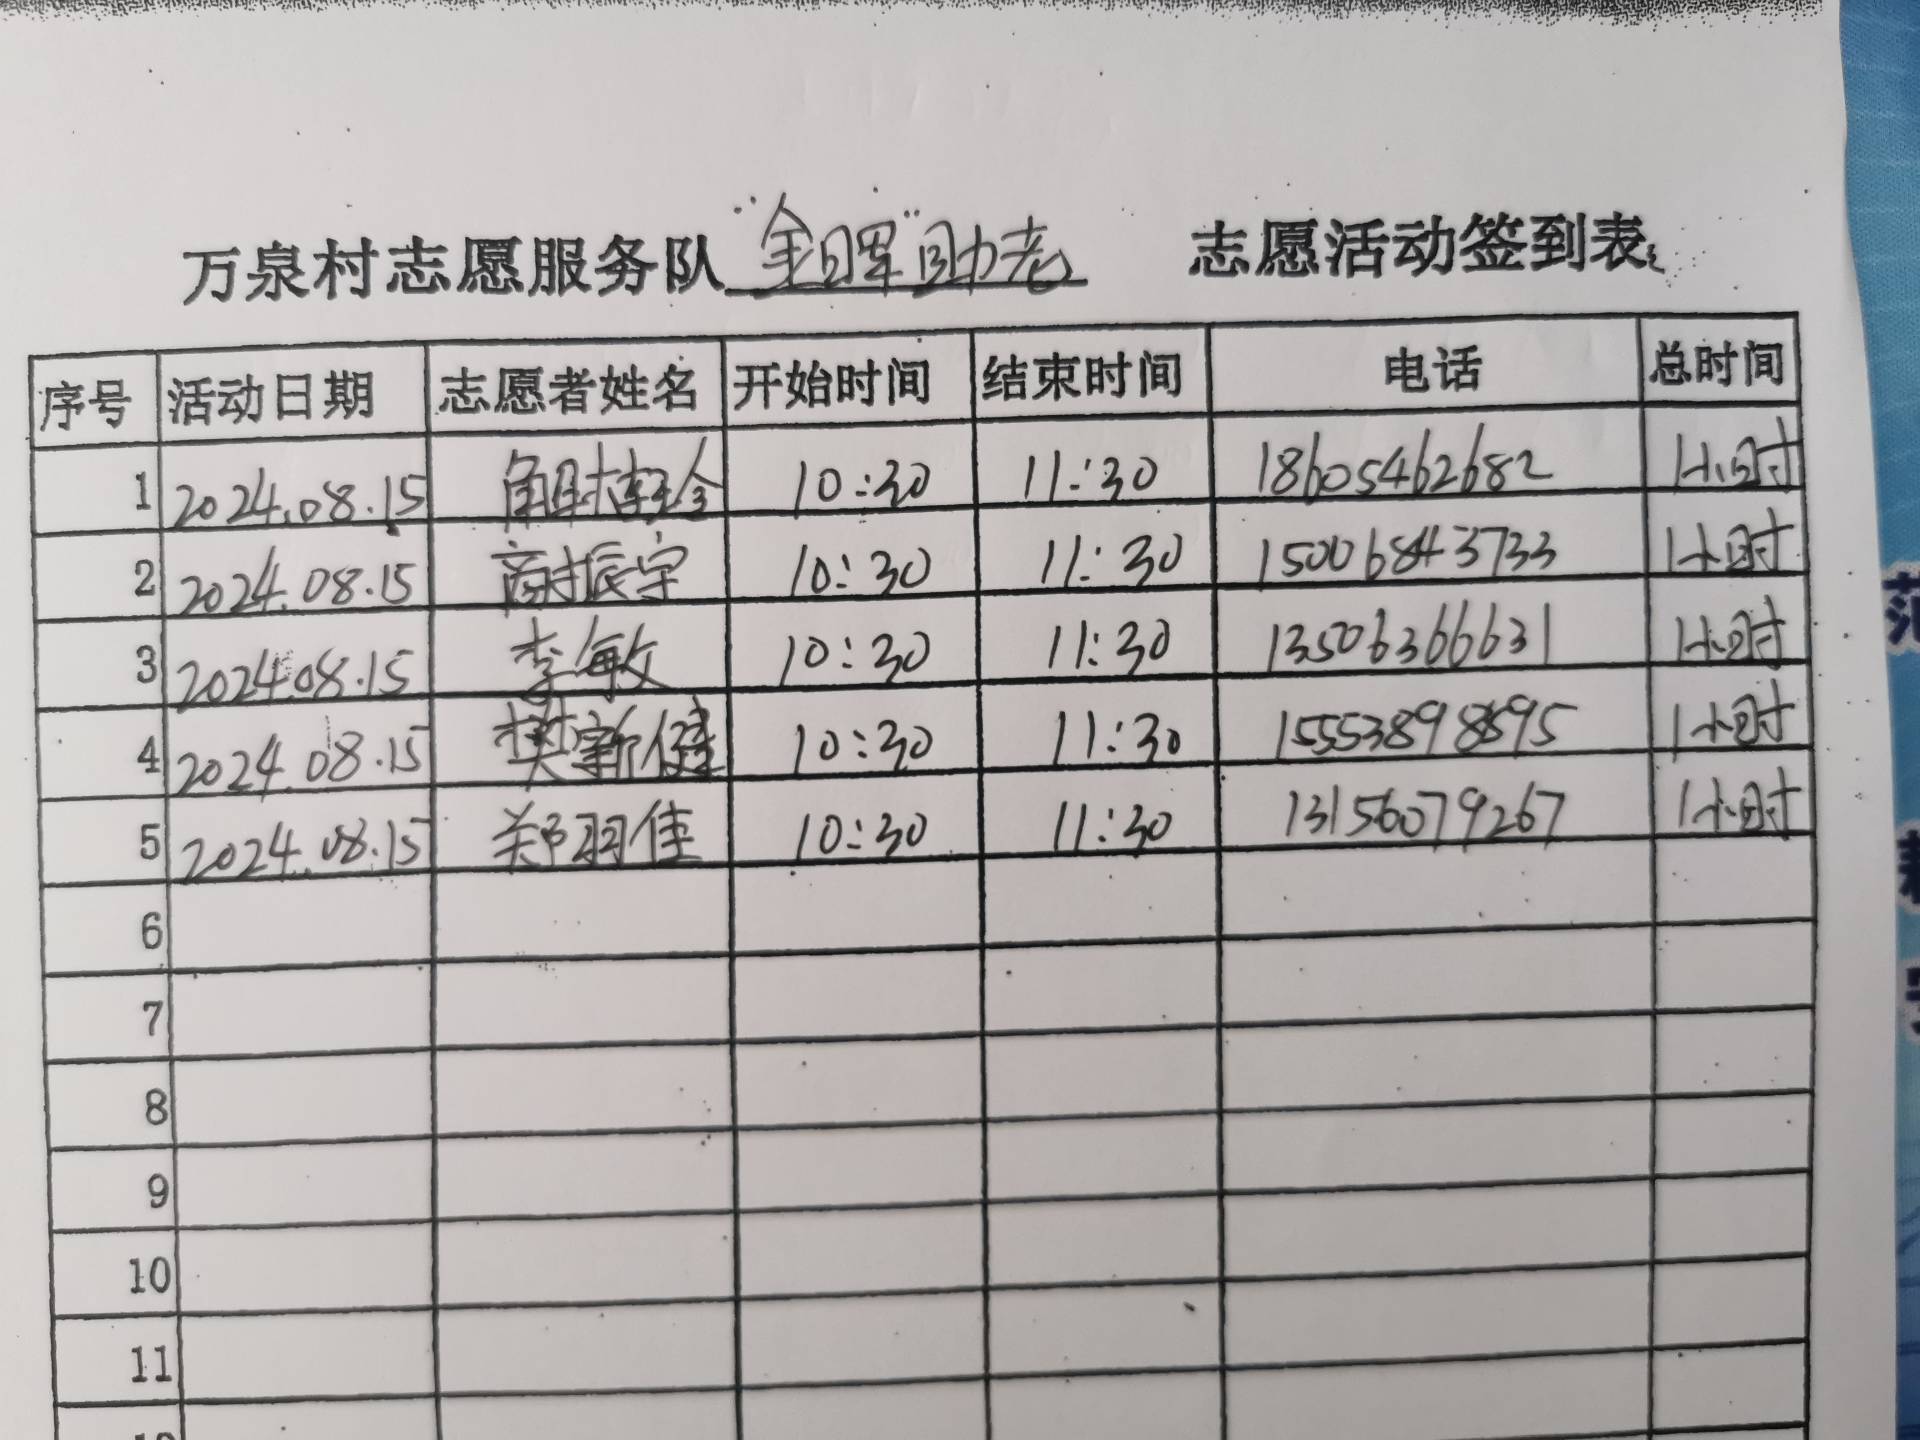 万泉村志愿服务队"金晖"助老 志愿活动签到表
序号 活动日期 志愿者姓名 开始时间 结束时间 电话 总时间
1 2024.08.15 10:30 11:30 18605462682 1小时
2 2024.08.15 商振宇 10:30 11:30 15006843733 1小时
3 2024.08.15 李敏 10:30 11:30 13506366631 1小时
4 2024.08.15 樊新健 10:30 11:30 15553898595 1小时
5 2024.08.15 郑羽佳 10:30 11:30 13156079267 1小时
6
7
8
9
10
11